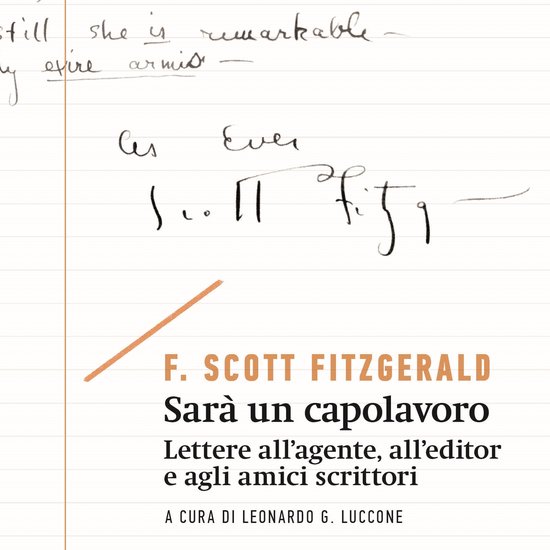 still she is remarkable —
As Ever
Scott Fitzg
F. SCOTT FITZGERALD
Sarà un capolavoro
Lettere all'agente, all'editor
e agli amici scrittori
A CURA DI LEONARDO G. LUCCONE